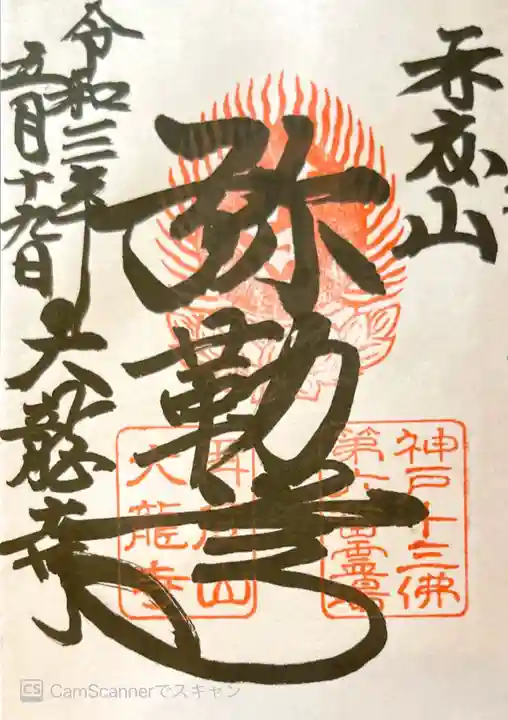 再度山
弥勒尊
令和三年
五月十九日
大龍寺
神戸十三佛
第六番霊場
再度山
大龍寺
CamScannerでスキャン